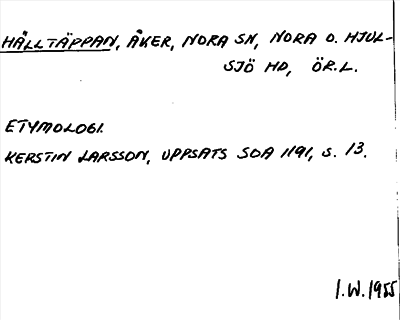 HÄLLTÄPPAN, ÅKER, NORA SN, NORA O. HJUL-
SJÖ HD, ÖR.L.
ETYMOLOGI.
KERSTIN LARSSON, UPPSATS SOA 1191, S. 13.
I.W. 1955